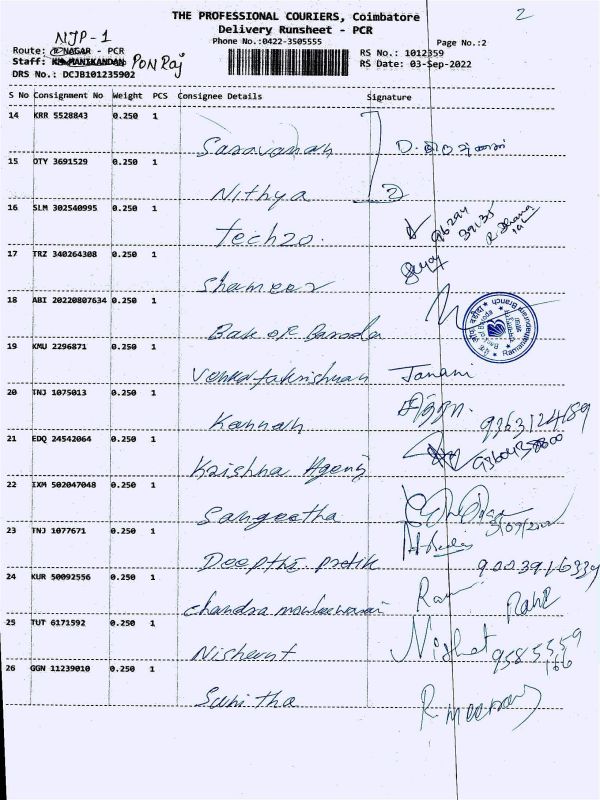 2
THE PROFESSIONAL COURIERS, Coimbatore
Delivery Runsheet - PCR
Phone No.:0422-3505555
Page No.:2
NJP-1
Route: R NAGAR - PCR
RS No.: 1012359
Staff: KM MANIKANDAN PON Raj
RS Date: 03-Sep-2022
DRS No.: DCJB101235902
S No Consignment No Weight PCS Consignee Details Signature
14 KRR 5528843 0.250 1
Saravanan D.
15 OTY 3691529 0.250 1
Nithya 2
16 SLM 302540995 0.250 1
Tech20.
17 TRZ 340264308 0.250 1
Shameer
18 ABI 20220807634 0.250 1
Bak of Baroda
19 KMU 2296871 0.250 1
Venkatakrishnan Janani
20 TNJ 1075013 0.250 1
Kannan 9363124189
21 EDQ 24542064 0.250 1
Krishna Agency 9360438800
22 IXM 502047048 0.250 1
Sangeetha
23 TNJ 1077671 0.250 1
Deepthi pratik 9003916339
24 KUR 50092556 0.250 1
Chandra mouleeswari Ram
25 TUT 6171592 0.250 1
Nishant Nishat 9585559
166
26 GGN 11239010 0.250 1
Sunitha R meena